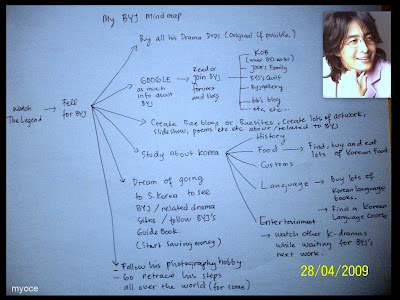 My BYJ Mind map
Buy all his Drama DVDs (original if possible)
Watch
The Legend
Fell
for BYJ
GOOGLE
as much
info about
BYJ
Read or
join BYJ
forums
and blogs
KOB
Jaime's Family
BYJ's Quilt
BYJGallery
bb's blog
etc, etc..
Create BYJ blogs or BYJ sites, Create lots of artwork,
slideshow, poems etc etc about/related to BYJ
Study about Korea
History
Food
Find, buy and eat
lots of Korean food
Customs
Language
Buy lots of
Korean language
books.
Find a Korean
Language Course
Entertainment
watch other K-dramas
while waiting for BYJ's
next work.
Dream of going
to S.Korea to see
BYJ / related drama
sites / follow BYJ's
Guide Book
(Start saving money)
- Follow his photography hobby
- Go Retrace his steps
all over the world (for some)
28/04/2009
myoce